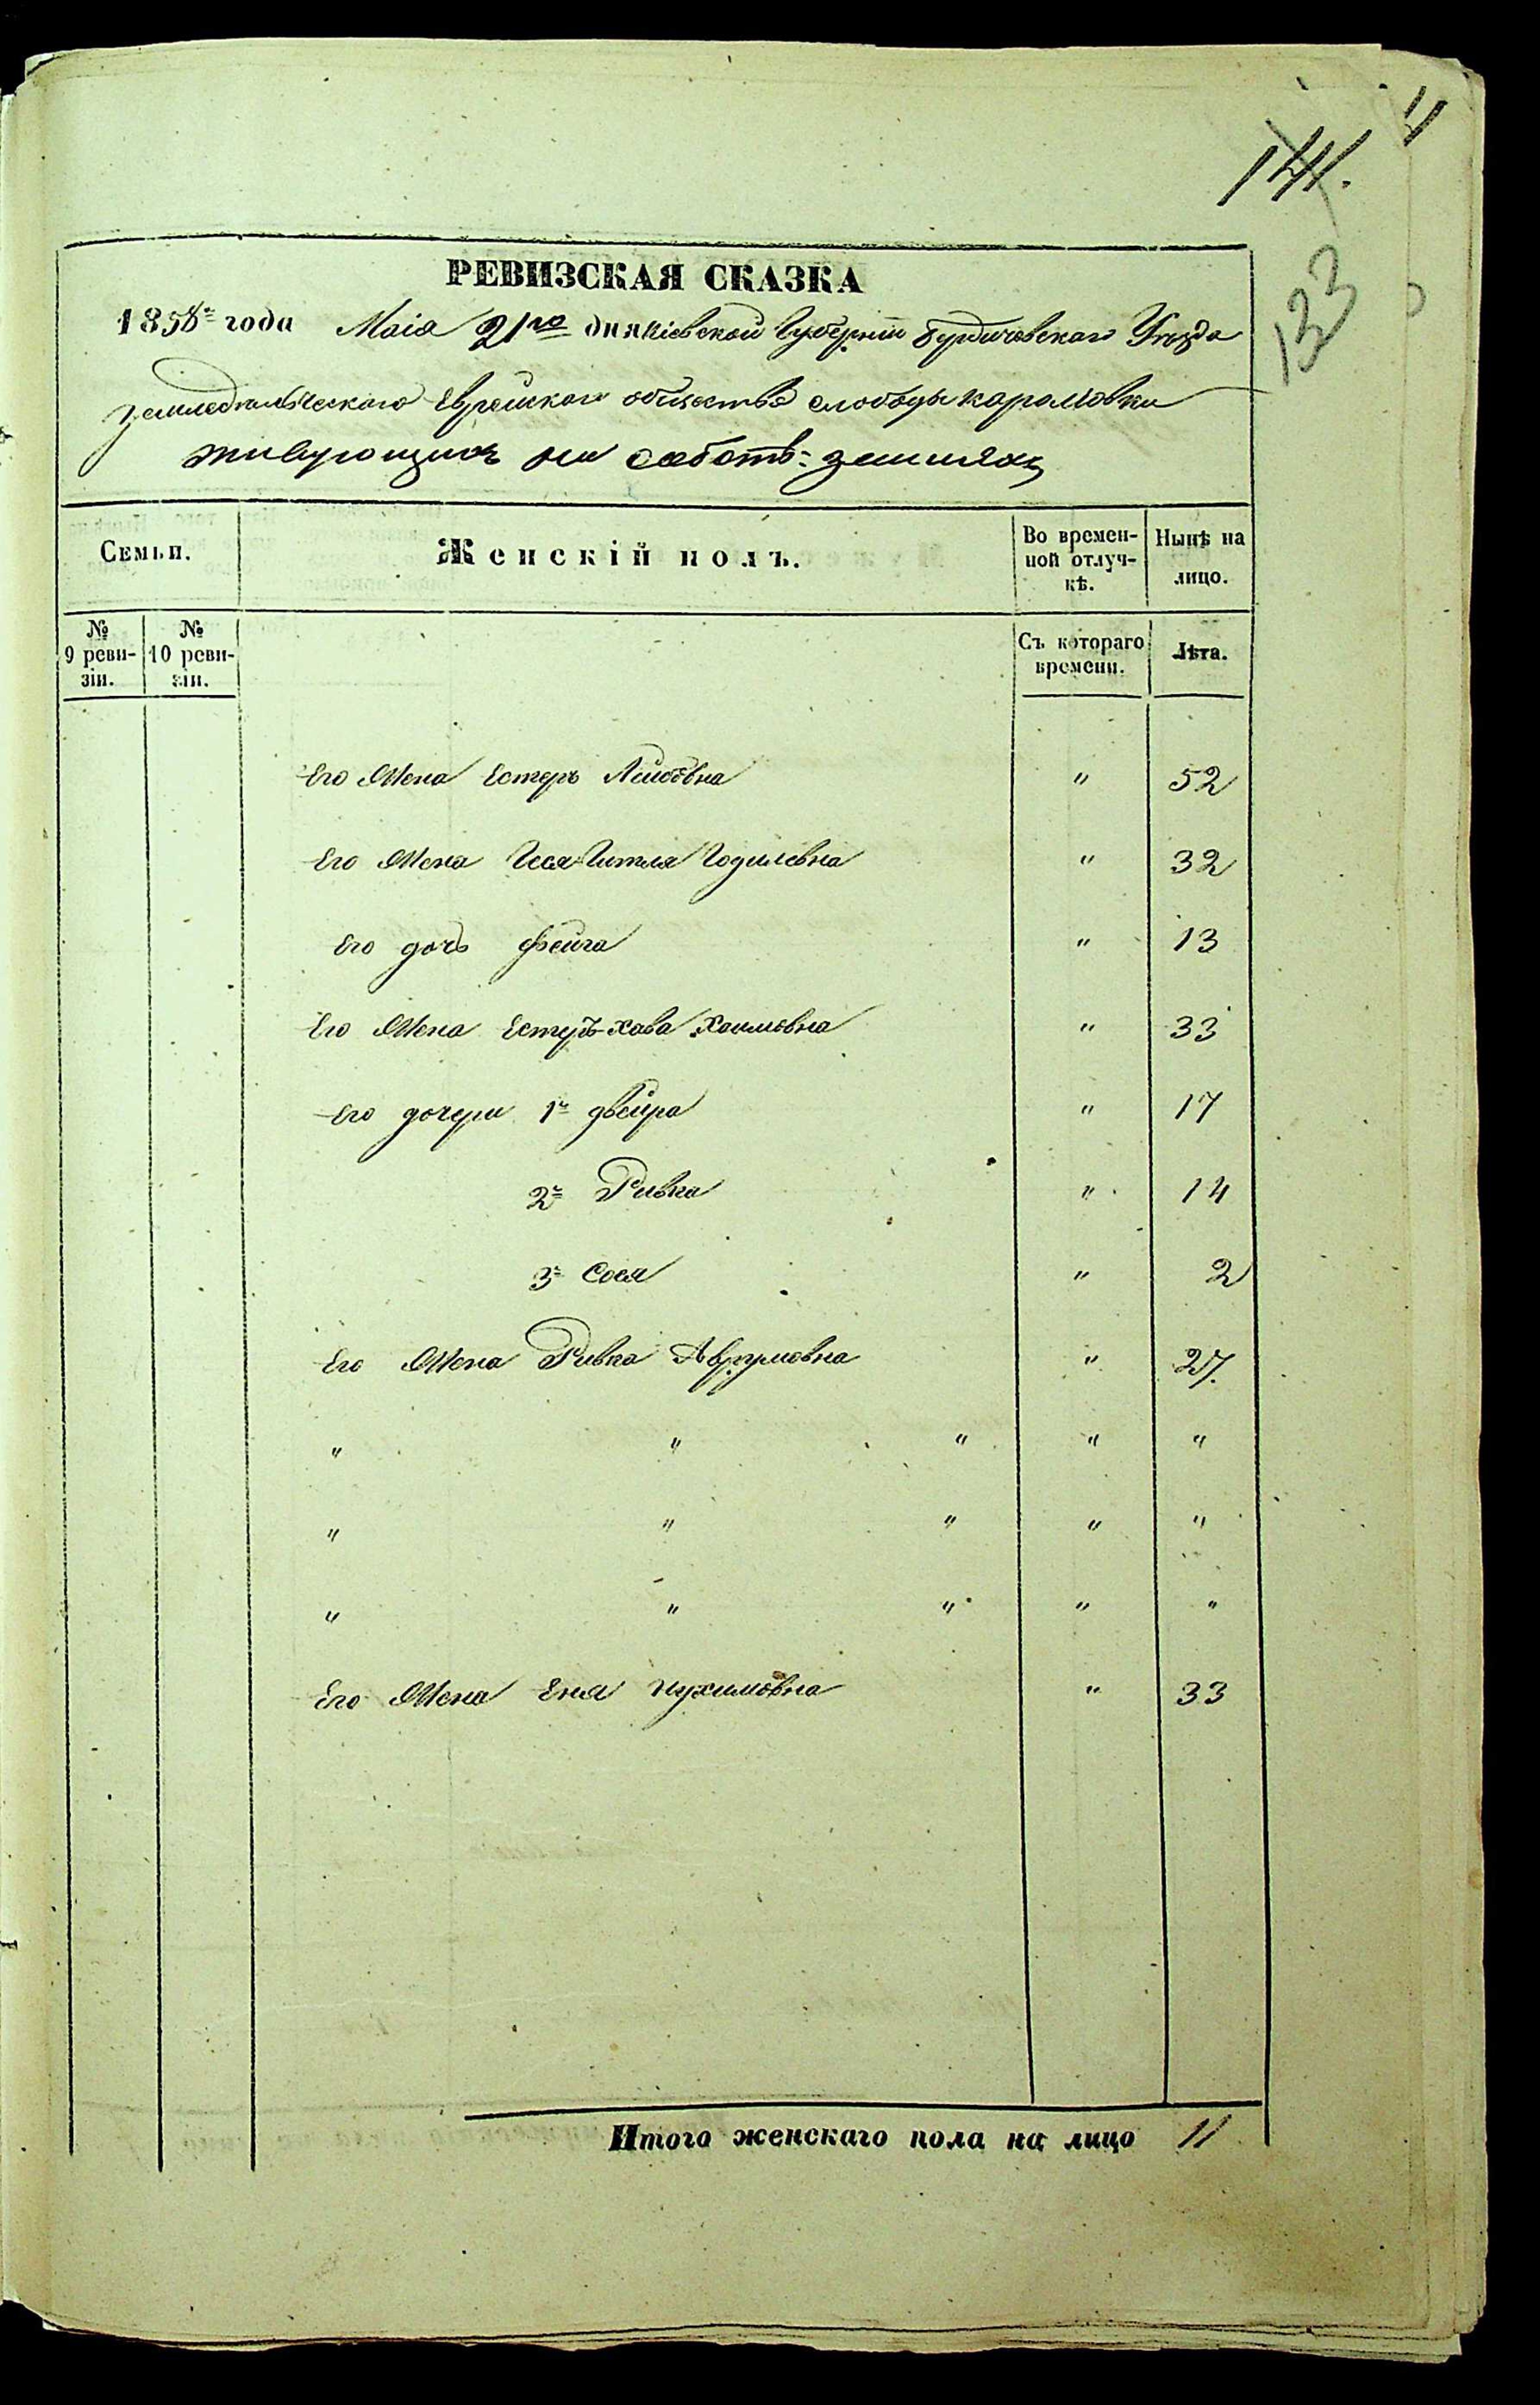 141.
11
123
РЕВИЗСКАЯ СКАЗКА
1858го года Маія 21го дня Кіевской Губерніи Бурдичовскаго Уезда
земледельческаго Еврейскаго общества слободы
живующихъ на собств: земляхъ
Семьи.
Женскій полъ.
Во времен-
ной отлуч-
кѣ.
Нынѣ на
лицо.
№
9 реви-
зіи.
№
10 реви-
зіи.
Съ котораго
времени.
Лѣта.
Его Жена Естеръ Лейбовна " 52
Его Жена Геся Гитля Годилевна " 32
Его дочь Фейга " 13
Его Жена Естеръ-Хава Хаимовна " 33
Его дочери 1я двейра " 17
2я Ривка " 14
3я Сося " 2
Его Жена Ривка Аврумовна " 27.
" " " " "
" " " " "
" " " " "
Его Жена Еня Нухимовна " 33
Итого женскаго пола на лицо 11